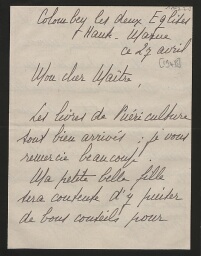 Colombey les deux Eglises
Haute-Marne
ce 27 avril
Mon cher Maître,
Les livres de Puériculture
sont bien arrivés ; je vous
remercie beaucoup.
Ma petite belle fille
sera contente d'y puiser
de bons conseils pour